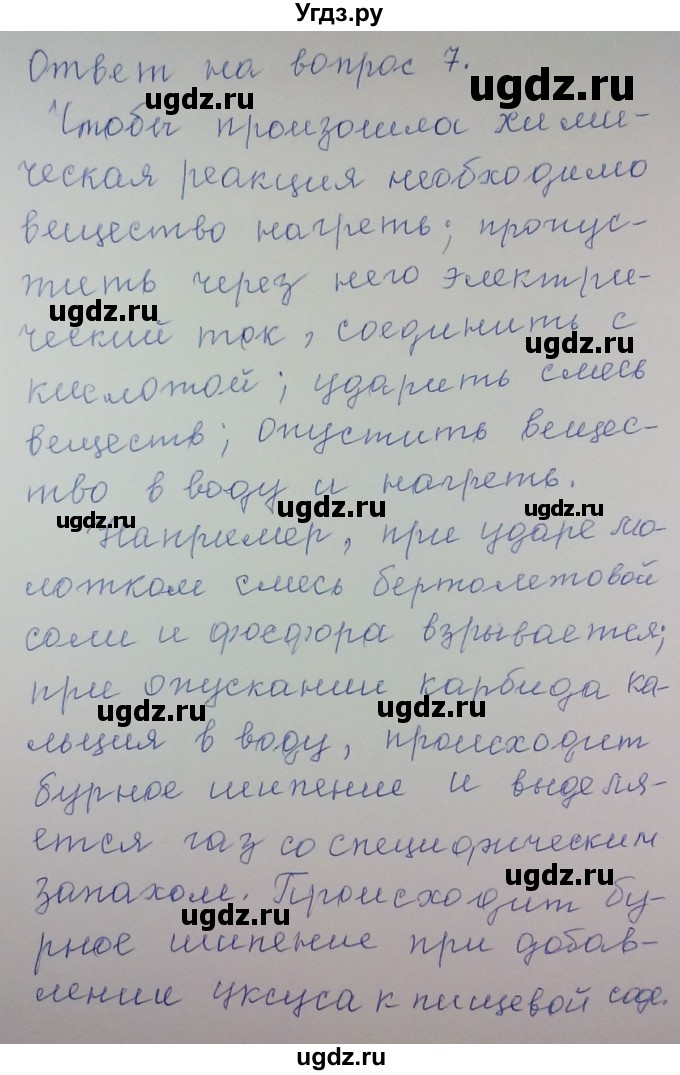 Угдз.ру
Ответ на вопрос 7.
ugdz.ru ugdz.ru
Чтобы произошла хими-
ческая реакция необходимо
вещество нагреть; пропус-
тить через него электри-
ugdz.ru
ческий ток, соединить с
ugdz.ru
кислотой; ударить смесь
веществ; опустить вещес-
тво в воду и нагреть.
ugdz.ru ugdz.ru ugdz.ru
Например, при ударе мо-
лотком смесь бертолетовой
соли и фосфора взрывается;
при опускании карбида ка-
ugdz.ru ugdz.ru
льция в воду, происходит
бурное шипение и выделя-
ется газ со специфическим
ugdz.ru
запахом. Происходит бу-
ugdz.ru
рное шипение при добав-
лении уксуса к пищевой соде.
ugdz.ru